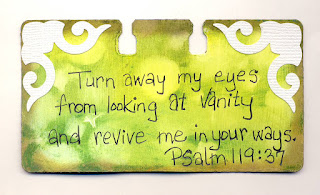 Turn away my eyes
from looking at vanity
and revive me in your ways.
Psalm 119:37